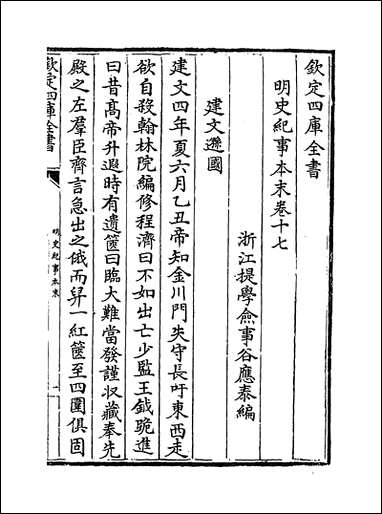 欽定四庫全書
明史紀事本末卷十七
浙江提學僉事谷應泰編
建文遜國
建文四年夏六月乙丑帝知金川門失守長吁東西走
欲自殺翰林院編修程濟曰不如出亡少監王鉞跪進
曰昔髙帝升遐時有遺篋曰臨大難當發謹收藏奉先
殿之左羣臣齊言急出之俄而舁一紅篋至四圍俱固
欽定四庫全書
明史紀事本末
一